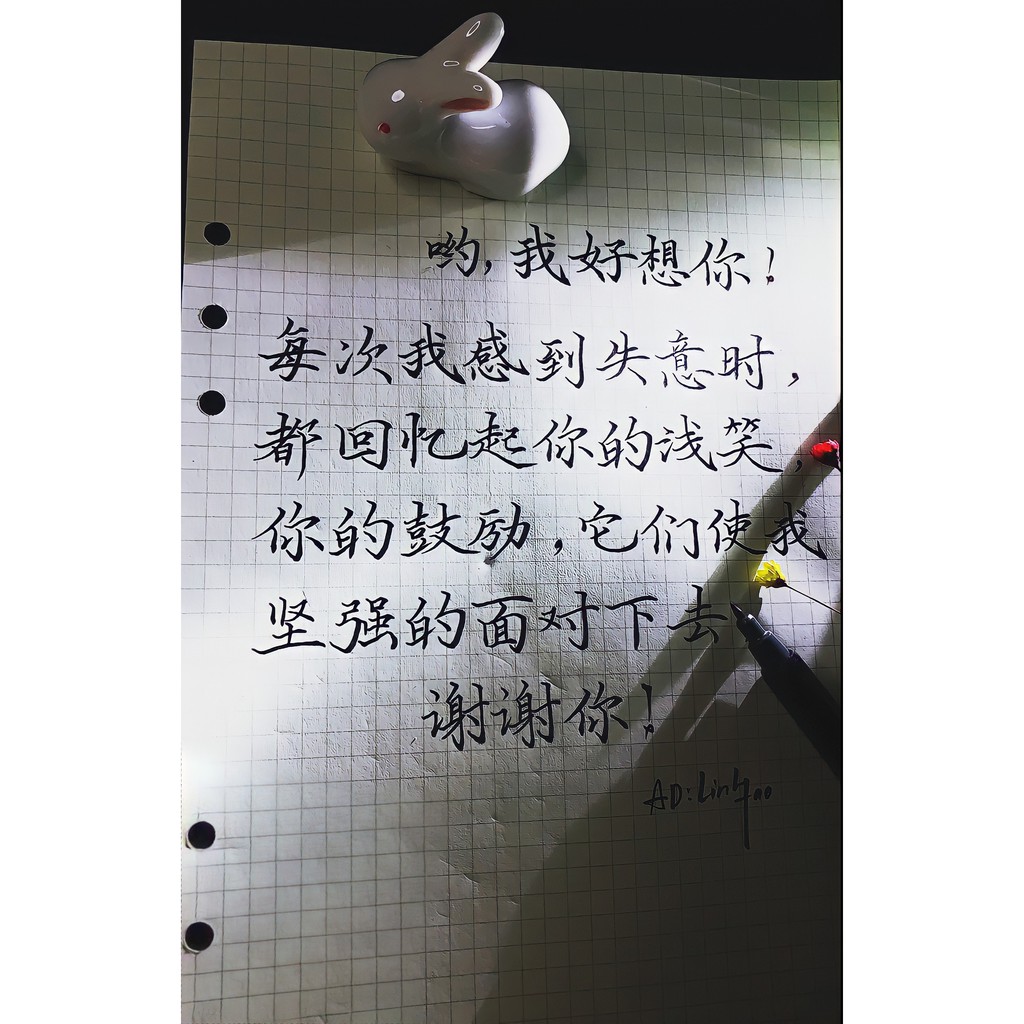 哟,我好想你!
每次我感到失意时,
都回忆起你的浅笑,
你的鼓励,它们使我
坚强的面对下去
谢谢你!
AD: